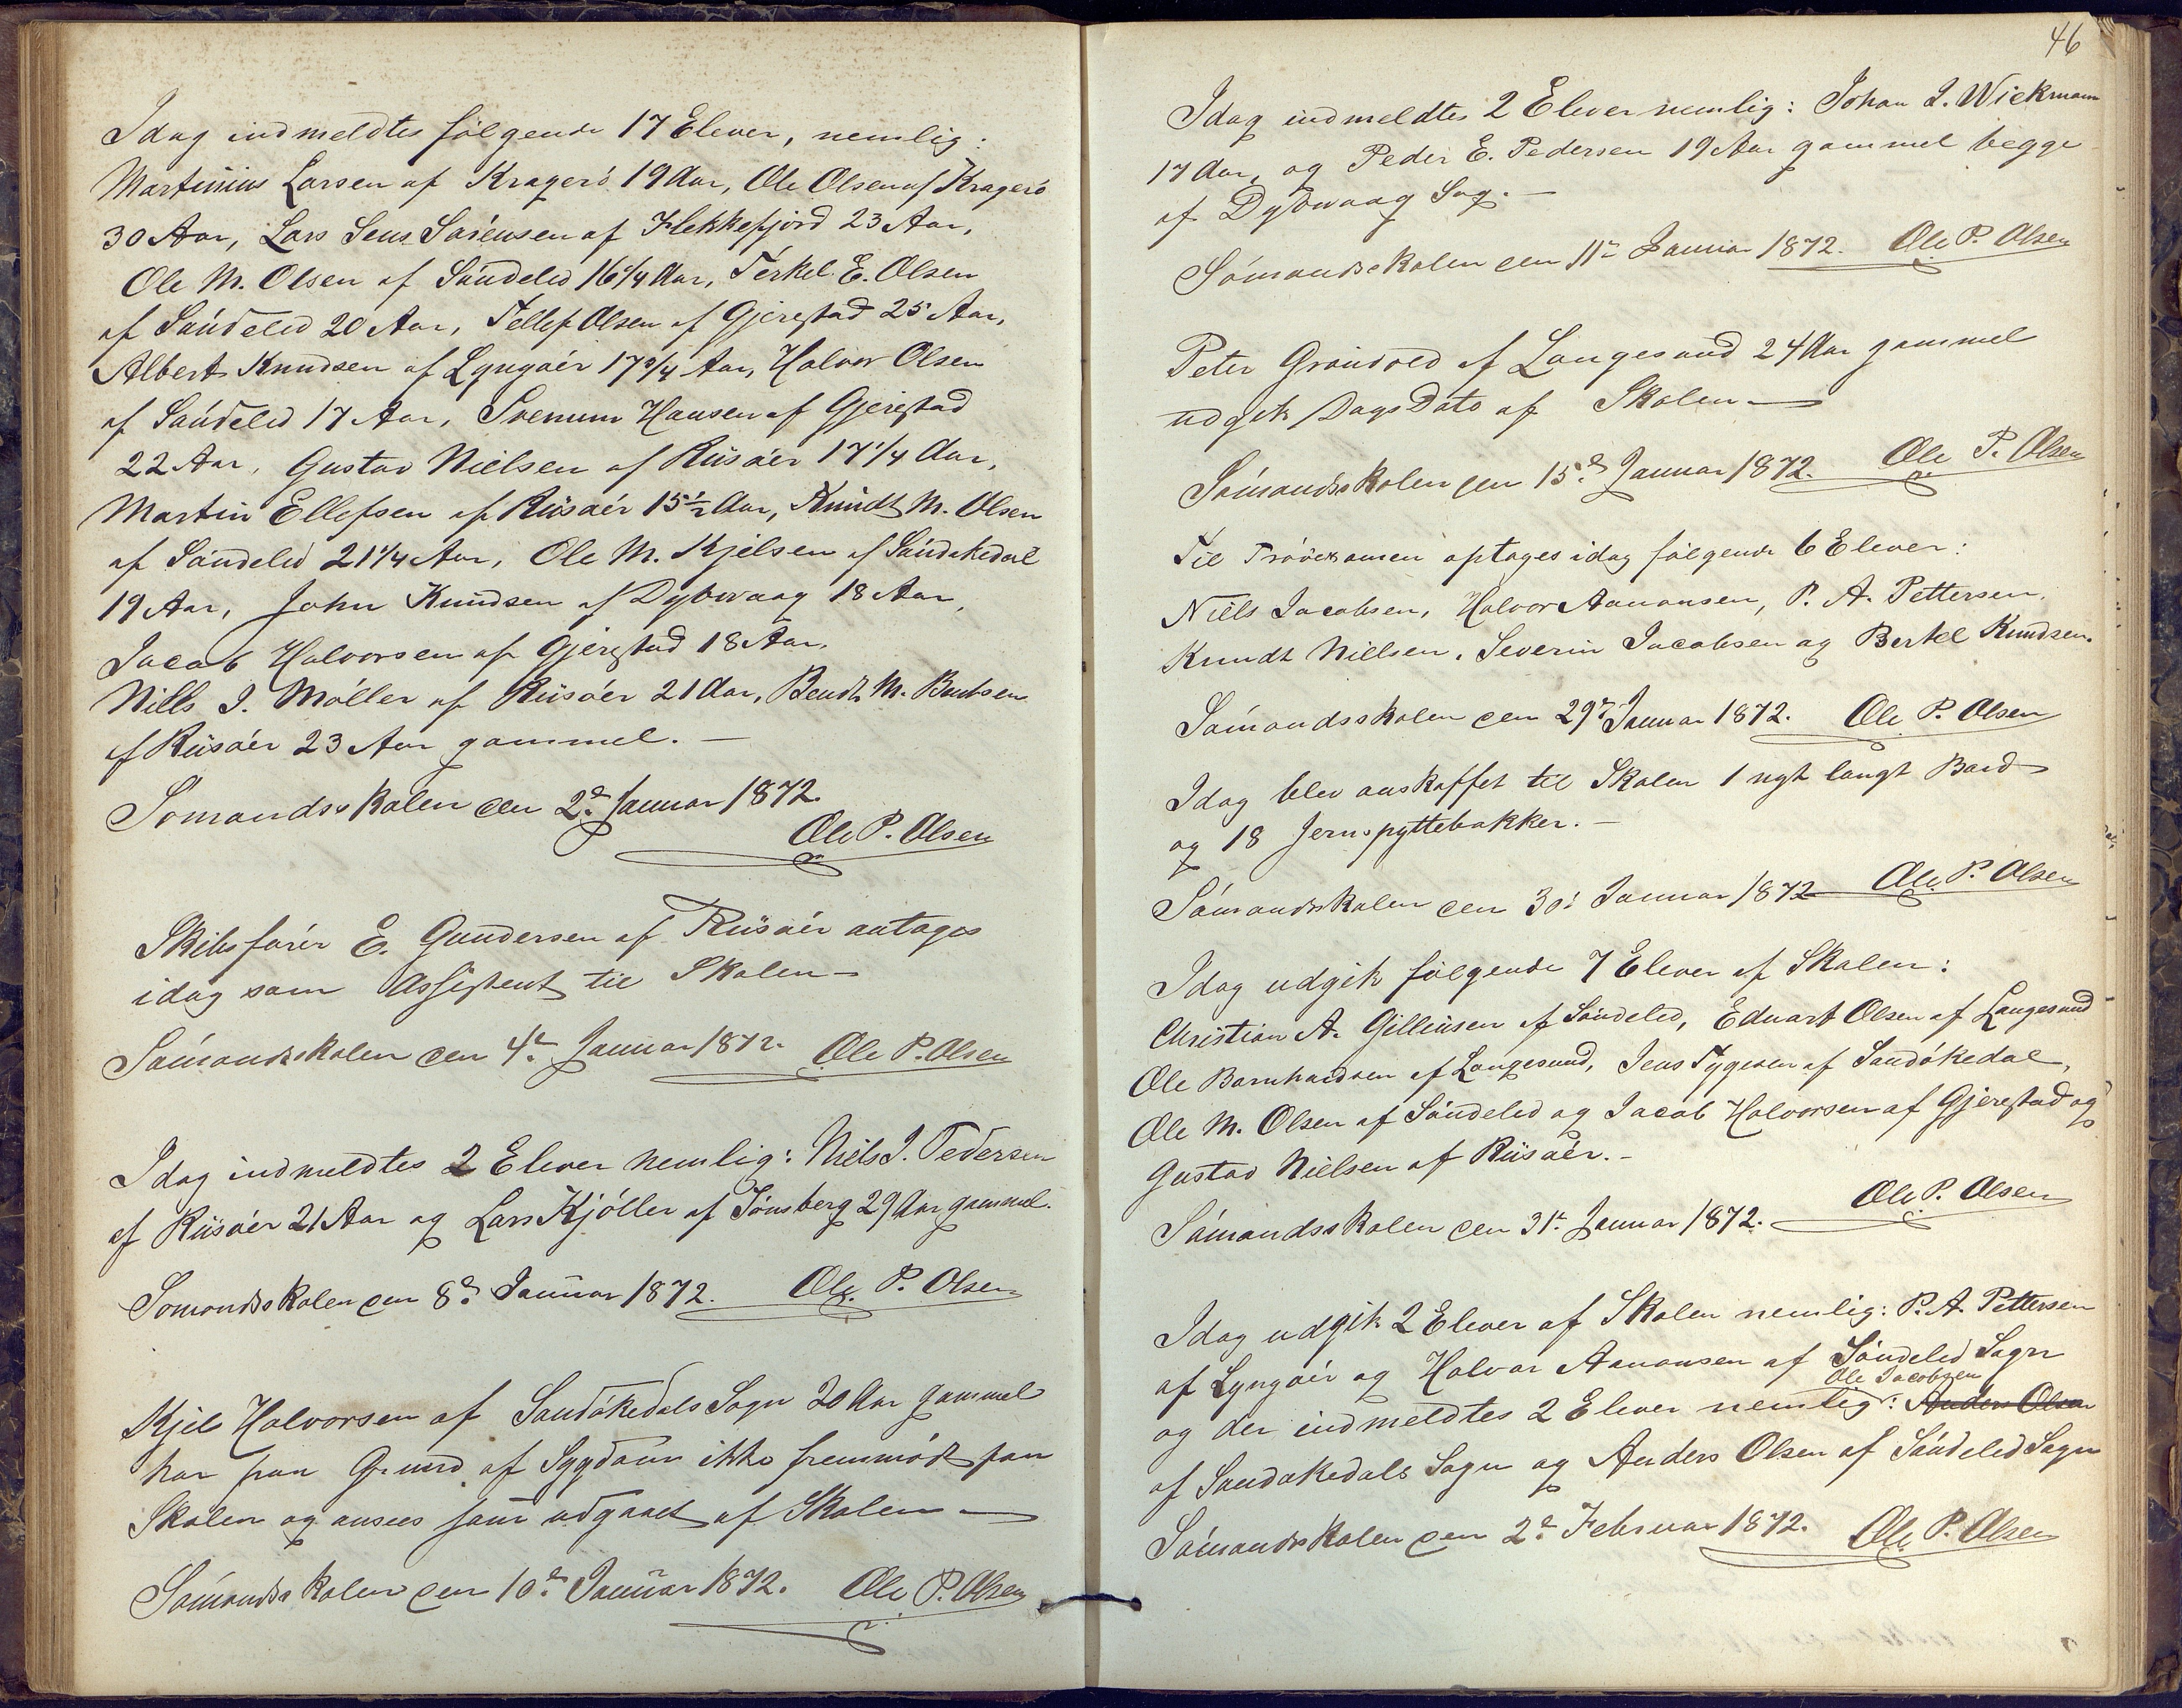 Idag indmeldtes fölgende 17 Elever, nemlig:
Martinius Larsen af Kragerö 19 Aar, Ole Olsen af Kragerö
30 Aar, Lars Jens Sörensen af Flekkefjord 23 Aar,
Ole M. Olsen af Söndeled 16 1/4 Aar, Terkel E. Olsen
af Söndeled 20 Aar, Tellef Olsen af Gjerestad 25 Aar,
Albert Knudsen af Lyngöer 17 3/4 Aar, Halvor Olsen
af Söndeled 17 Aar, Svenum Hansen af Gjerestad
22 Aar, Gustav Nielsen af Riisöer 17 1/4 Aar,
Martin Ellefsen af Riisöer 15 1/2 Aar, Knudt M. Olsen
af Söndeled 21 1/4 Aar, Ole M. Kjelsen af Sandökedal
19 Aar, John Knudsen af Dybvaag 18 Aar,
Jacob Halvorsen af Gjerestad 18 Aar,
Nills J. Möller af Riisöer 21 Aar, Bendt M. Bentsen
af Riisöer 23 Aar gammel. —
Sömandsskolen den 2d. Januar 1872.
Ole P. Olsen
Skibsförer E. Gundersen af Riisöer antages
idag som Assistent til Skolen —
Sömandsskolen den 4de Januar 1872. Ole P. Olsen
Idag indmeldtes 2 Elever nemlig: Niels J. Pedersen
af Riisöer 21 Aar og Lars Kjöller af Tönsberg 29 Aar gammel.
Sömandsskolen den 8d. Januar 1872. Ole P. Olsen
Kjel Halvorsen af Sandökedals Sogn 20 Aar gammel
har paa Grund af Sygdom ikke fremmödt paa
Skolen og ansees som udgaaet af Skolen —
Sömandsskolen den 10d. Januar 1872. Ole P. Olsen
46
Idag indmeldtes 2 Elever nemlig: Johan L. Wickmann
17 Aar, og Peder E. Pedersen 19 Aar gammel begge
af Dybvaag Sog. —
Sömandsskolen den 11te Januar 1872. Ole P. Olsen
Peter Gröndvold af Langesund 24 Aar gammel
udgik Dags Dato af Skolen —
Sömandsskolen den 15d. Januar 1872. Ole P. Olsen
Til Pröveexamen optages idag fölgende 6 Elever:
Niels Jacobsen, Halvor Aanonsen, P. A. Pettersen,
Knudt Nielsen, Severin Jacobsen og Bertel Knudsen.
Sömandsskolen den 29d. Januar 1872. Ole P. Olsen
Idag blev anskaffet til Skolen 1 nyt langt Bord
og 18 Jernspyttebakker. —
Sömandsskolen den 30. Januar 1872 Ole P. Olsen
Idag udgik fölgende 7 Elever af Skolen:
Christian A. Gilliusen af Söndeled, Eduart Olsen af Langesund
Ole Barnhardsen af Langesund, Jens Tygesen af Sandökedal,
Ole M. Olsen af Söndeled og Jacob Halvorsen af Gjerestad og
Gustav Nielsen af Riisöer. —
Sömandsskolen den 31te Januar 1872. Ole P. Olsen
Idag udgik 2 Elever af Skolen nemlig: P. A. Pettersen
af Lyngöer og Halvor Aanonsen af Söndeled Sogn
Ole Jacobsen
og der indmeldtes 2 Elever nemlig: Anders Olsen
af Sandökedals Sogn og Anders Olsen af Söndeled Sogn
Sömandsskolen den 2d. Februar 1872. Ole P. Olsen